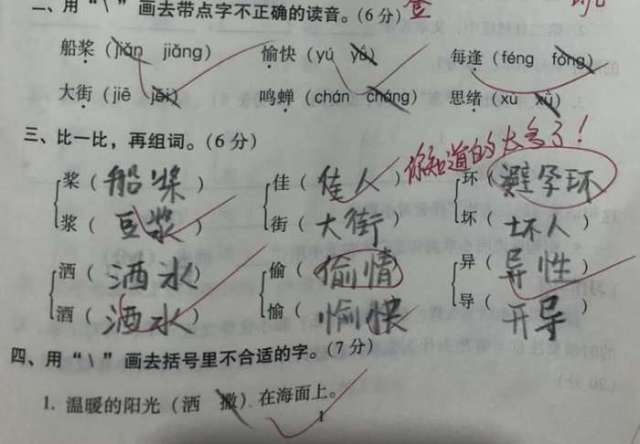 二、用“\”画去带点字不正确的读音。(6分)
船桨(jiǎn jiǎng) 愉快(yú yù) 每逢(féng fōng)
大街(jiē jēi) 鸣蝉(chán cháng) 思绪(xu xù)
三、比一比，再组词。(6分)
你知道的太多了！
桨(船桨) 佳(佳人) 环(避孕环)
浆(豆浆) 街(大街) 坏(坏人)
洒(洒水) 偷(偷情) 异(异性)
酒(酒水) 愉(愉快) 导(开导)
四、用“\”画去括号里不合适的字。(7分)
1. 温暖的阳光(洒 撒)在海面上。
1